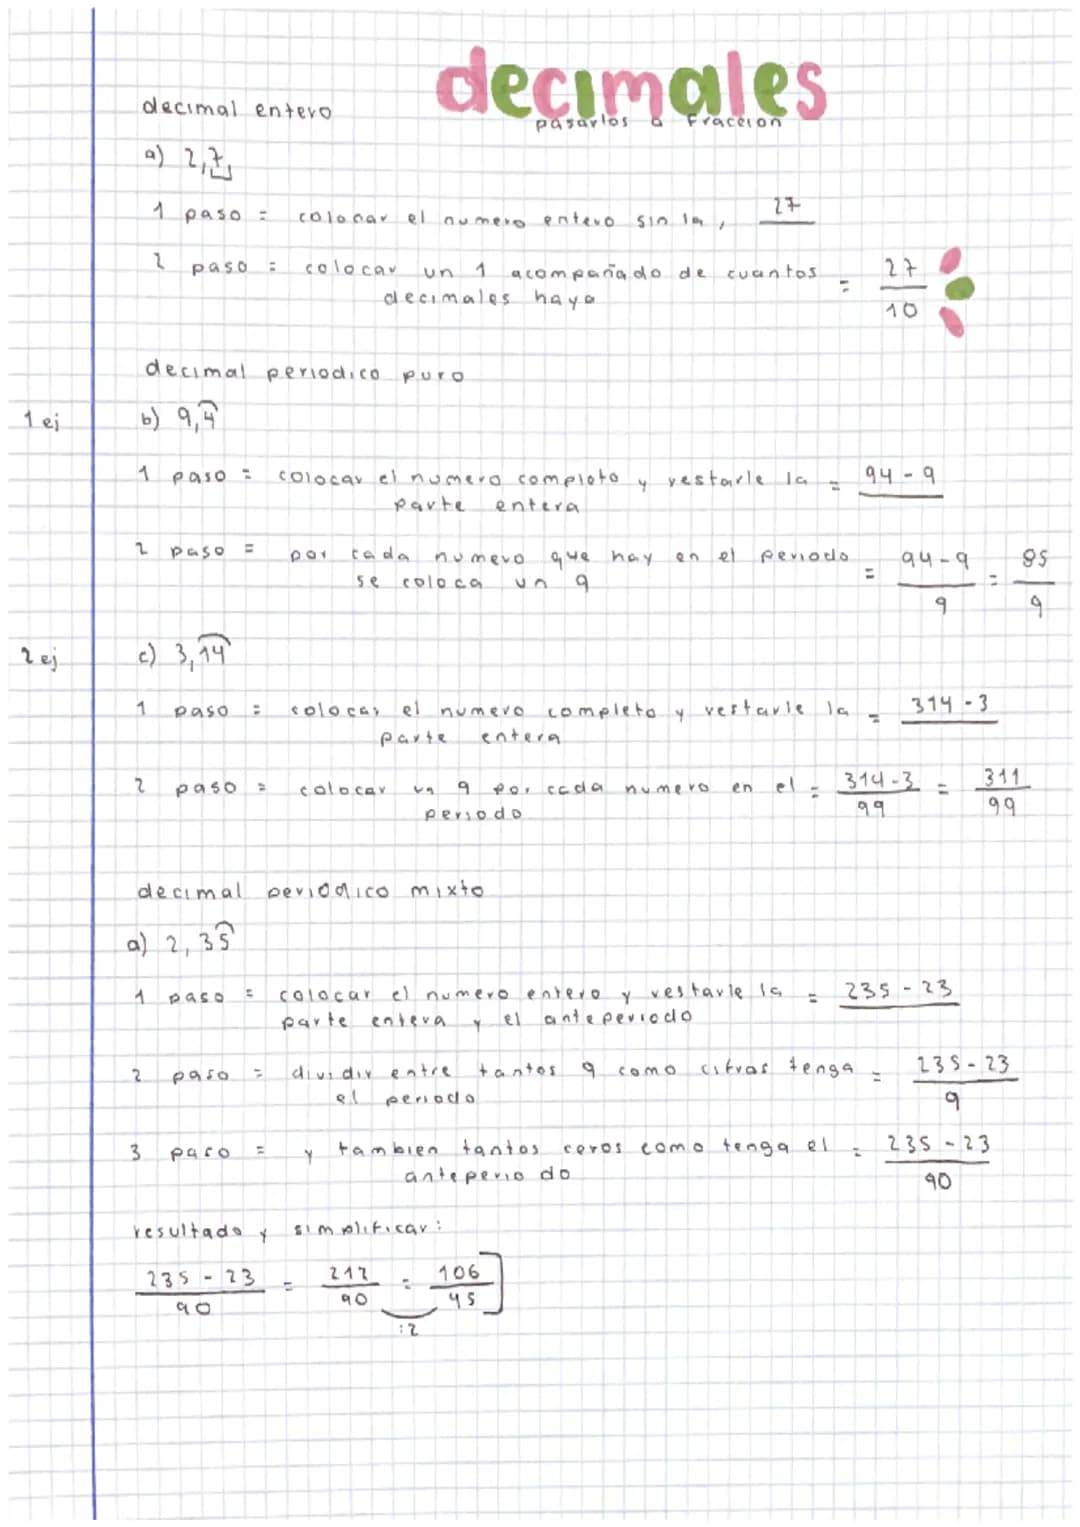 decimales
pasarlos a fraccion
decimal entero
a) 2,7
1 paso = colocar el numero entero sin la , 27
2 paso = colocar un 1 acompañado de cuantos = 27/10
decimales haya
decimal periodico puro
1 ej b) 9,4
1 paso = colocar el numero completo y restarle la = 94 - 9
parte entera
2 paso = por cada numero que hay en el periodo = 94-9/9 = 85/9
se coloca un 9
2 ej c) 3,14
1 paso = colocar el numero completo y restarle la = 314 - 3
parte entera
2 paso = colocar un 9 por cada numero en el = 314-3/99 = 311/99
periodo
decimal periodico mixto
a) 2,35
1 paso = colocar el numero entero y restarle la = 235 - 23
parte entera y el anteperiodo
2 paso = dividir entre tantos 9 como cifras tenga = 235-23/9
el periodo
3 paso = y tambien tantos ceros como tenga el = 235-23/90
anteperio do
resultado y simplificar:
235 - 23/90 = 212/90 = 106/45
:2